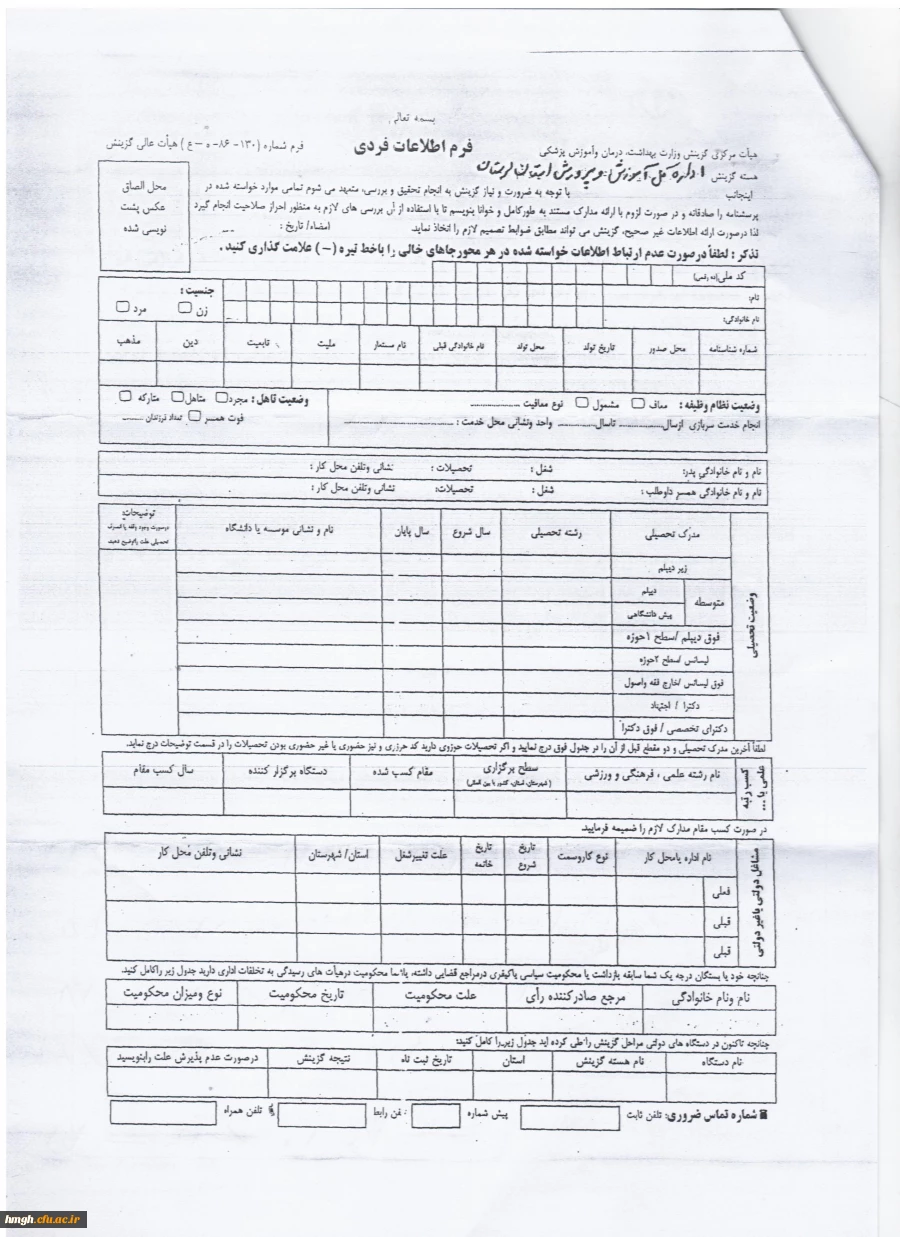 بسمه تعالی
هیأت مرکزی گزینش وزارت بهداشت، درمان وآموزش پزشکی
فرم اطلاعات فردی
فرم شماره (۱۳۰- ۸۶- ه – ع ) هیأت عالی گزینش
هسته گزینش اداره کل آموزش و پرورش استان لرستان
محل الصاق
عکس پشت
نویسی شده
اینجانب با توجه به ضرورت و نیاز گزینش به انجام تحقیق و بررسی، متعهد می شوم تمامی موارد خواسته شده در
پرسشنامه را صادقانه و در صورت لزوم با ارائه مدارک مستند به طورکامل و خوانا بنویسم تا با استفاده از آن بررسی های لازم به منظور احراز صلاحیت انجام گیرد
لذا درصورت ارائه اطلاعات غیر صحیح، گزینش می تواند مطابق ضوابط تصمیم لازم را اتخاذ نماید. امضاء/ تاریخ :
تذکر : لطفاً درصورت عدم ارتباط اطلاعات خواسته شده در هر محورجاهای خالی را باخط تیره (–) علامت گذاری کنید.
کد ملی(ده رقمی)
نام:
نام خانوادگی:
جنسیت :
زن مرد
شماره شناسنامه محل صدور تاریخ تولد محل تولد نام خانوادگی قبلی نام مستعار ملیت تابعیت دین مذهب
وضعیت نظام وظیفه : معاف مشمول نوع معافیت
انجام خدمت سربازی ازسال تاسال واحد ونشانی محل خدمت :
وضعیت تاهل : مجرد متاهل متارکه
فوت همسر تعداد فرزندان
نام و نام خانوادگی پدر: شغل : تحصیلات : نشانی وتلفن محل کار :
نام و نام خانوادگی همسر داوطلب : شغل : تحصیلات: نشانی وتلفن محل کار :
وضعیت تحصیلی
مدرک تحصیلی رشته تحصیلی سال شروع سال پایان نام و نشانی موسسه یا دانشگاه
توضیحات:
درصورت وجود وقفه یا
تحصیلی علت راتوضیح دهید.
زیر دیپلم
متوسطه
دیپلم
پیش دانشگاهی
فوق دیپلم /سطح ۱حوزه
لیسانس /سطح ۲حوزه
فوق لیسانس /خارج فقه واصول
دکترا / اجتهاد
دکترای تخصصی / فوق دکترا
لطفاً آخرین مدرک تحصیلی و دو مقطع قبل از آن را در جدول فوق درج نمایید و اگر تحصیلات حوزوی دارید کد مرکزی و نیز حضوری یا غیر حضوری بودن تحصیلات را در قسمت توضیحات درج نماید.
کسب رتبه
علمی یا ...
نام رشته علمی ، فرهنگی و ورزشی سطح برگزاری مقام کسب شده دستگاه برگزار کننده سال کسب مقام
(شهرستان، استان، کشور یا بین المللی)
در صورت کسب مقام مدارک لازم را ضمیمه فرمایید.
مشاغل دولتی یاغیر دولتی
نام اداره یامحل کار نوع کاروسمت تاریخ شروع تاریخ خاتمه علت تغییرشغل استان/ شهرستان نشانی وتلفن محل کار
فعلی
قبلی
قبلی
چنانچه خود یا بستگان درجه یک شما سابقه بازداشت یا محکومیت سیاسی یاکیفری درمراجع قضایی داشته، یاشما محکومیت درهیأت های رسیدگی به تخلفات اداری دارید جدول زیر راکامل کنید.
نام ونام خانوادگی مرجع صادرکننده رأی علت محکومیت تاریخ محکومیت نوع ومیزان محکومیت
چنانچه تاکنون در دستگاه های دولتی مراحل گزینش راطی کرده اید جدول زیررا کامل کنید:
نام دستگاه نام هسته گزینش استان تاریخ ثبت نام نتیجه گزینش درصورت عدم پذیرش علت رابنویسید
شماره تماس ضروری: تلفن ثابت پیش شماره تلفن رابط تلفن همراه
hmgh.cfu.ac.ir